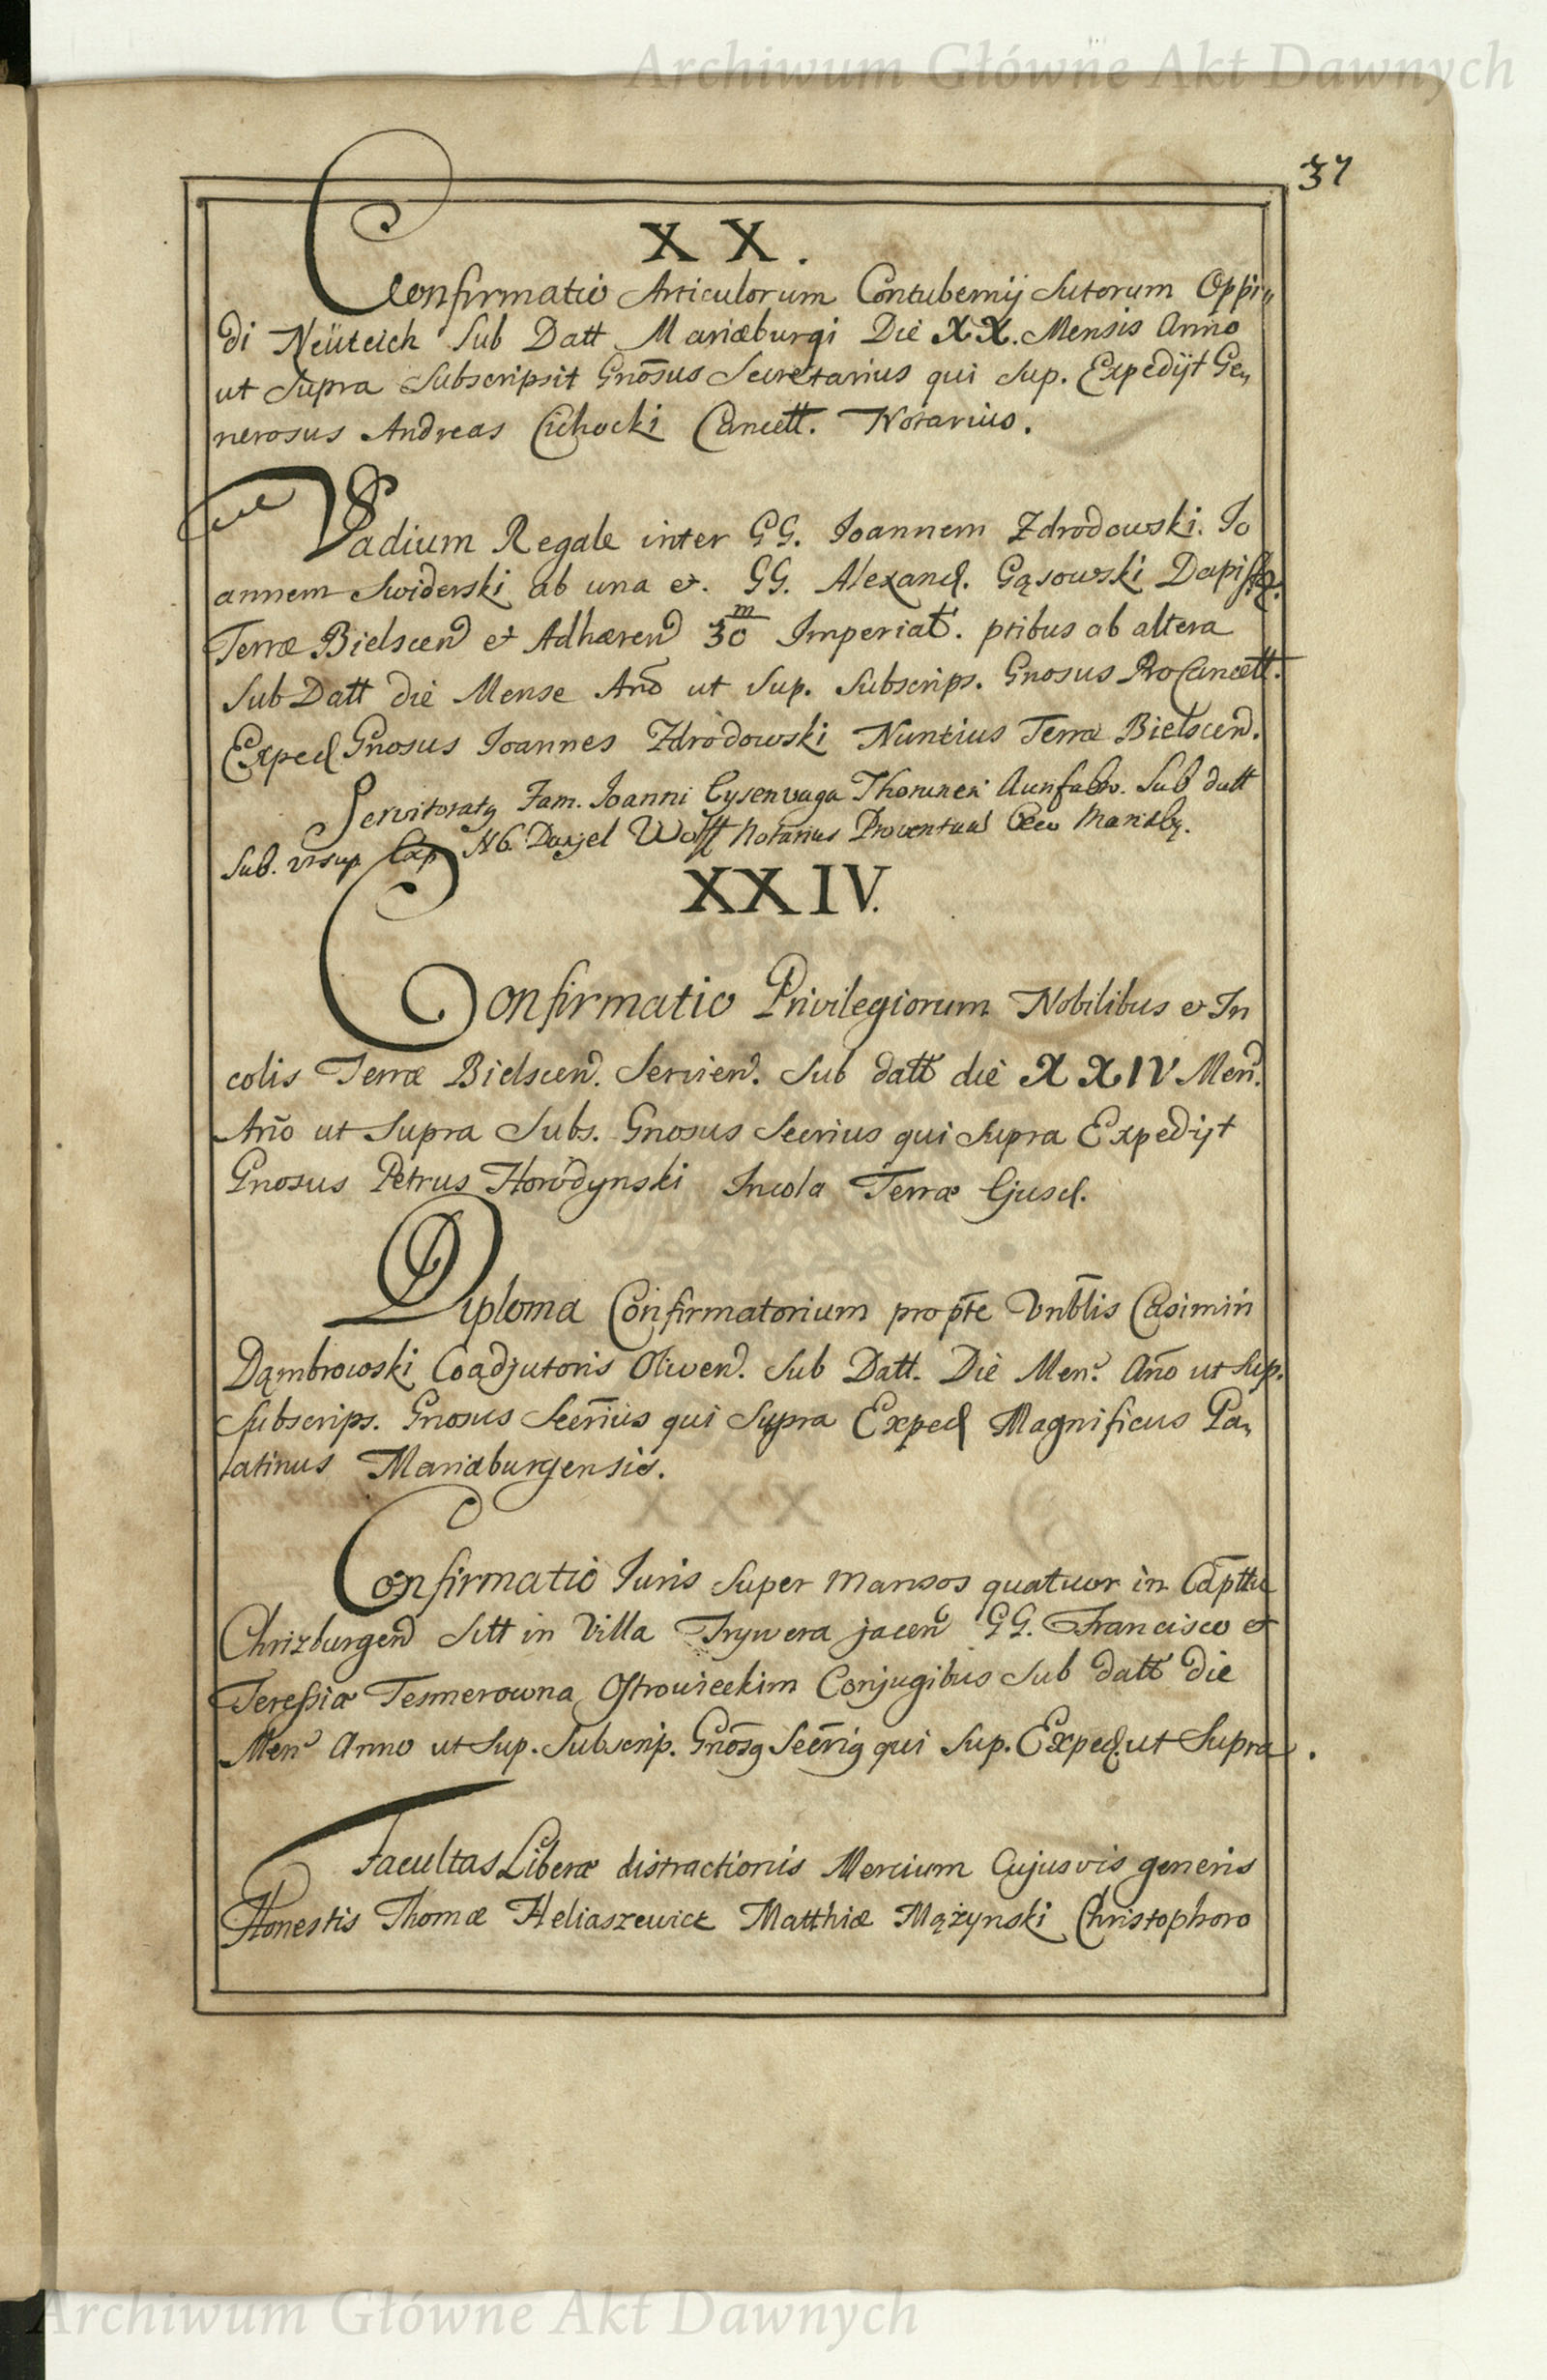 Archiwum Główne Akt Dawnych
37
XX.
Confirmatio Articulorum Contubernij Sutorum Oppi„
di Neüteich Sub Datt Mariæburgi Die XX. Mensis Anno
ut Supra Subscripsit Gnōsus Secretarius qui Sup. Expedijt Ge„
nerosus Andreas Cichocki Cancell. Notarius.
Vadium Regale inter GG. Joannem Zdrodowski. Jo
annem Swiderski ab una et. GG. Alexand. Gąsowski Dapiff.
Terræ Bielscen et Adhæren 30 m Imperial. ptibus ab altera
Sub Datt die Mense Anō ut Sup. Subscrips. Gnosus ProCancell.
Exped Gnosus Joannes Zdrodowski Nuntius Terræ Bielscen.
Servitoratq Fam. Joanni Eysenvaga Sub datt
Sub. ut sup Exp NG. Danjel Wolff Notarius
XXIV.
Confirmatio Privilegiorum Nobilibus et In
colis Terræ Bielscen. Servien. Sub datt die XXIV Men.
Año ut Supra Subs. Gnosus Secrius qui Supra Expedijt
Gnosus Petrus Horodynski Incola Terræ Ejusd.
Diploma Confirmatorium pro pte Vnblis Casimiri
Dąmbrowski Coadjutoris Oliven. Sub Datt. Die Men. Año ut Sup.
Subscrips. Gnosus Secrius qui Supra Exped Magnificus Pa„
latinus Mariæburgensis.
Confirmatio Juris Super mansos quatuor in Capttu
Chrizburgen Sitt in Villa Trywera jacen GG. Francisco et
Teressiæ Tesmerowna Ostrowieckim Conjugibus Sub datt die
Men Anno ut Sup. Subscrip. Gnōsq Secriq qui Sup. Exped. ut Supra.
Facultas Liberæ distractionis Mercium Cujusvis generis
Honestis Thomæ Heliaszewicz Matthiæ Mążynski Christophoro
Archiwum Główne Akt Dawnych